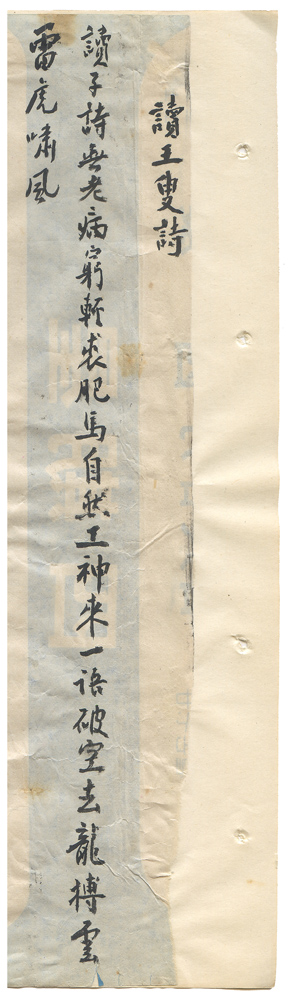 讀王叟詩
讀子詩無老病窮輕裘肥馬自然工神來一語破空去龍搏雲
雷虎嘯風